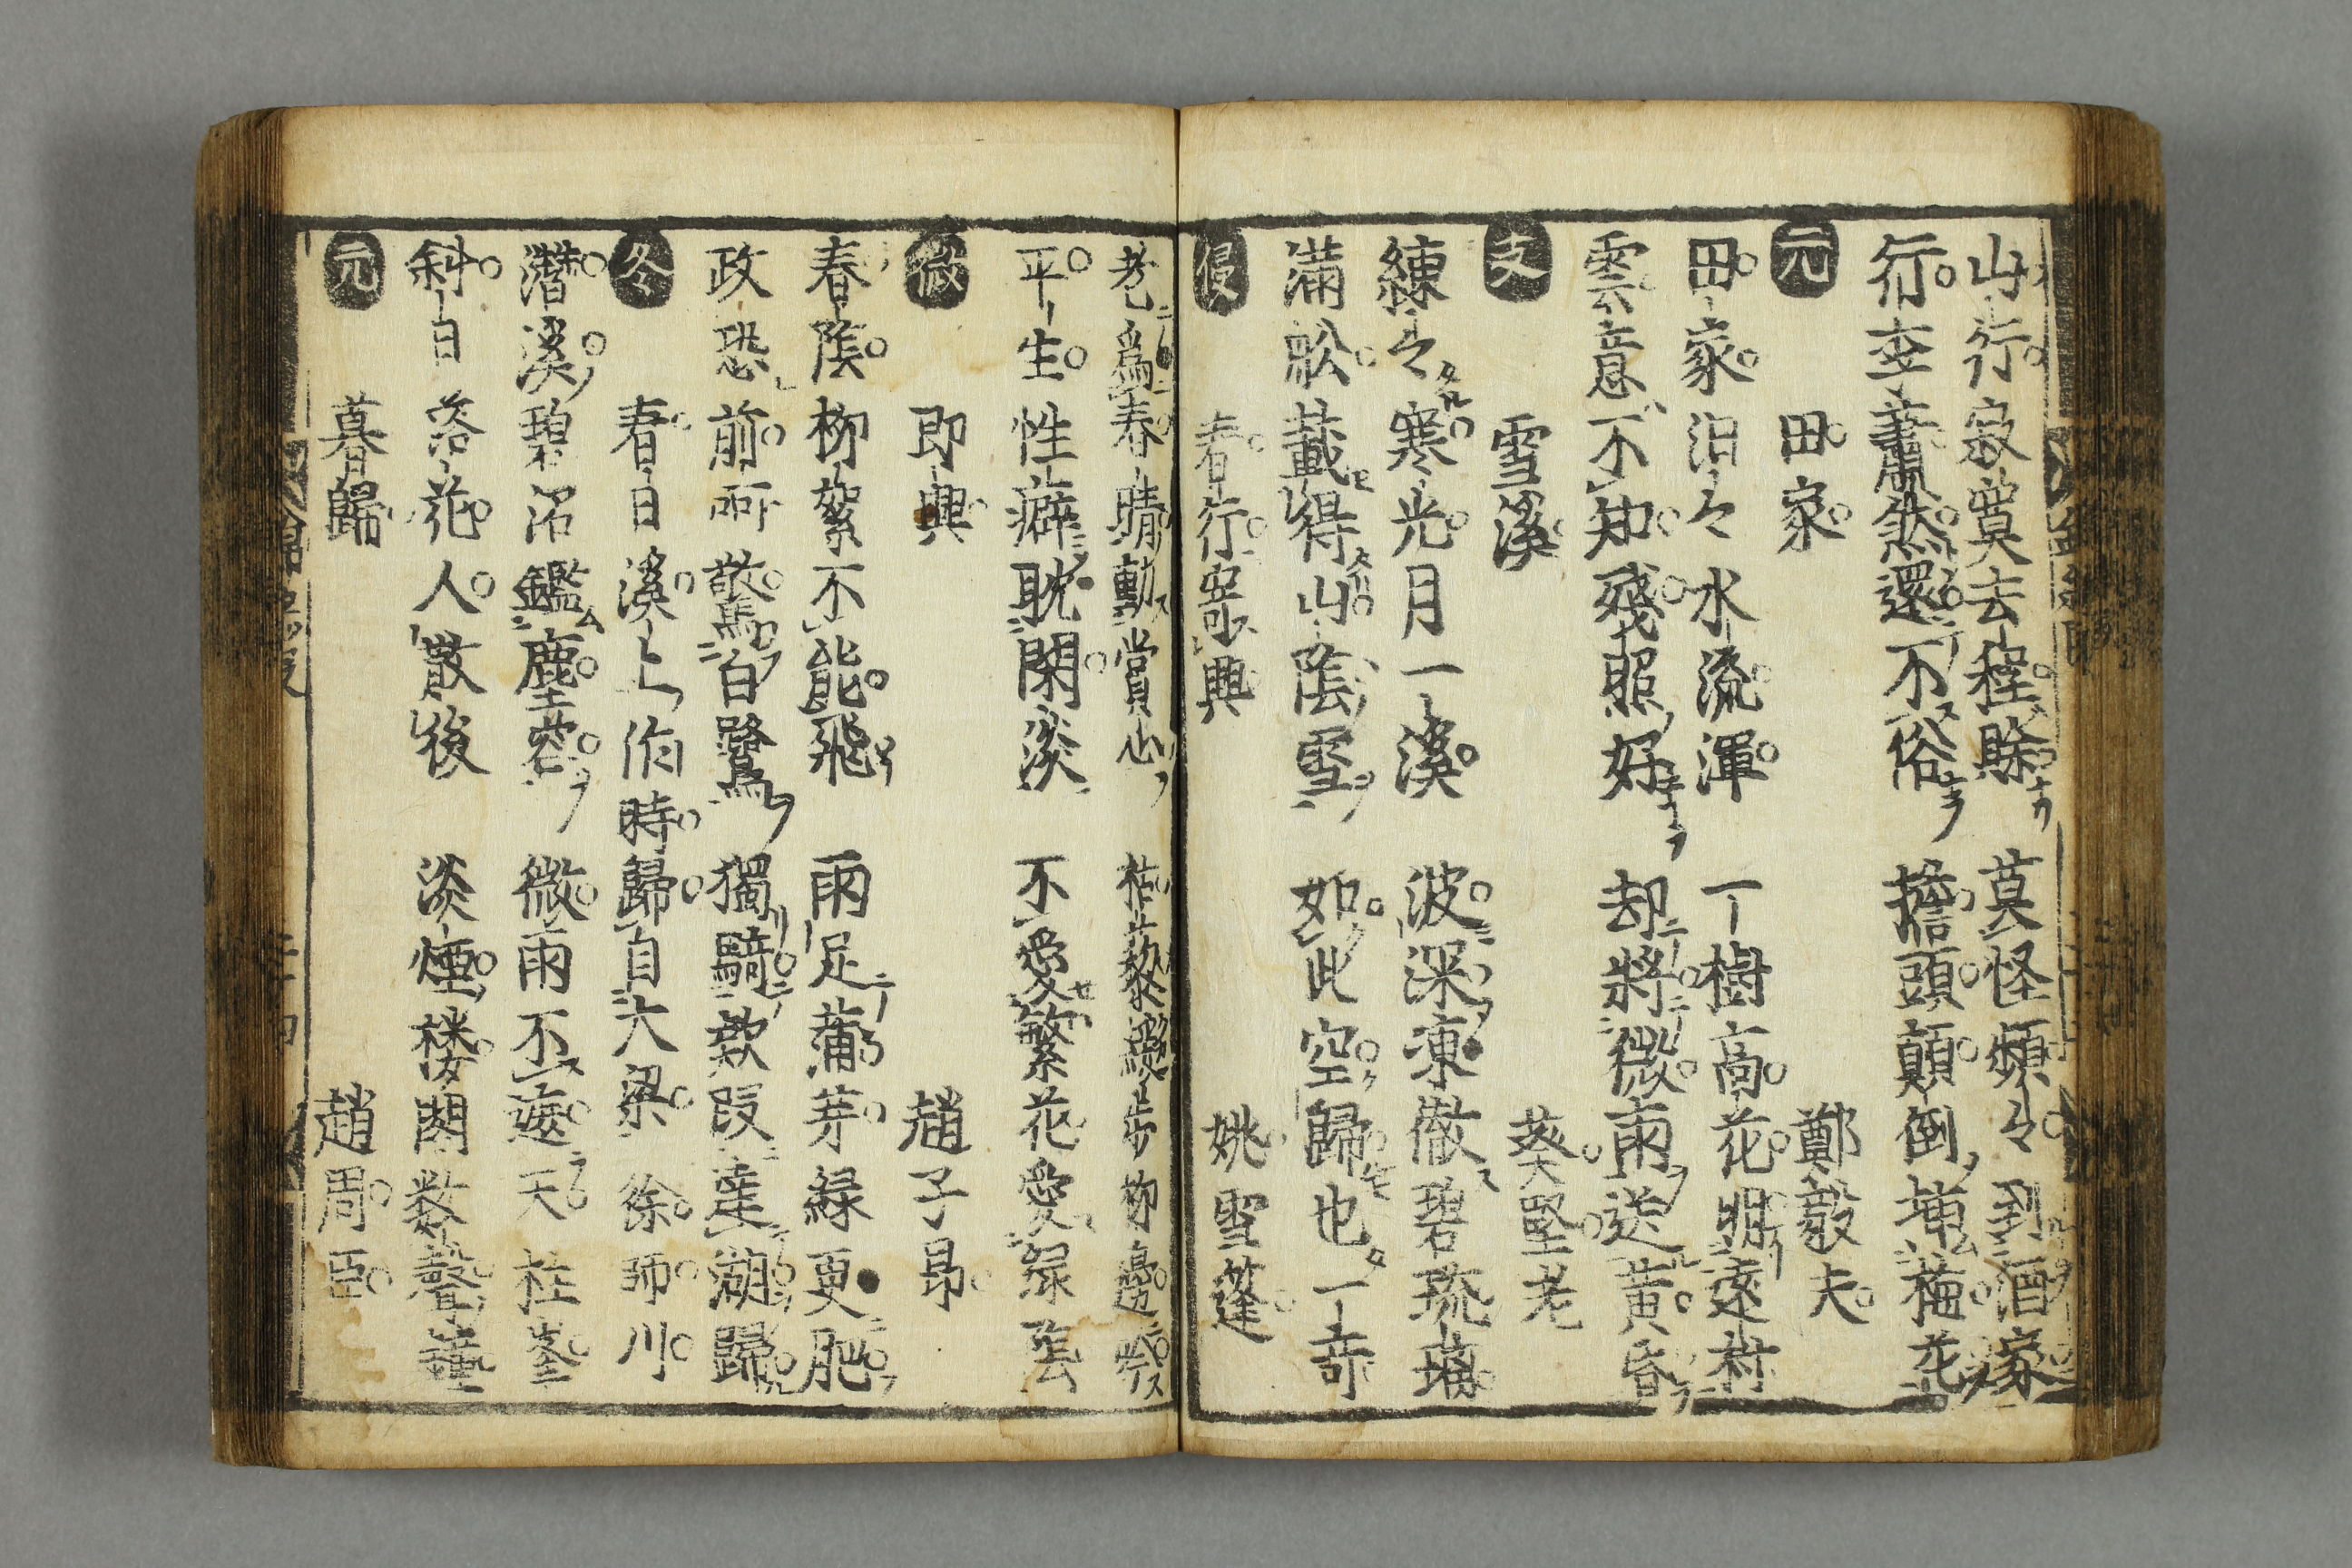 山行寂寞去程賖 莫怪頻々到酒家
行李蕭然還不俗 擔頭顛倒挿梅花
元 田家 鄭毅夫
田家汨々水流渾 一樹高花明遠村
雲意不知殘照好 却將微雨送黄昏
文 雪溪 葵堅老
練々寒光月一溪 波深凍徹碧琉璃
滿舩載得山陰雪 如此空歸也一奇
侵 春行寄興 姚雪篷
老爲春晴動賞心 杖藜緩歩栁邊
平生性癖耽閑淡 不愛繁花愛緑陰
微 即興 趙子昂
春陰栁絮不能飛 雨足蒲芽緑更肥
政恐前呵驚白鷺 獨騎款段遶湖歸
冬 春日溪上作時歸自大梁 徐師川
潜溪碧沼鑑塵容 微雨不遮天柱峯
斜日落花人散後 淡煙楼閣数聲鐘
元 暮歸 趙周臣